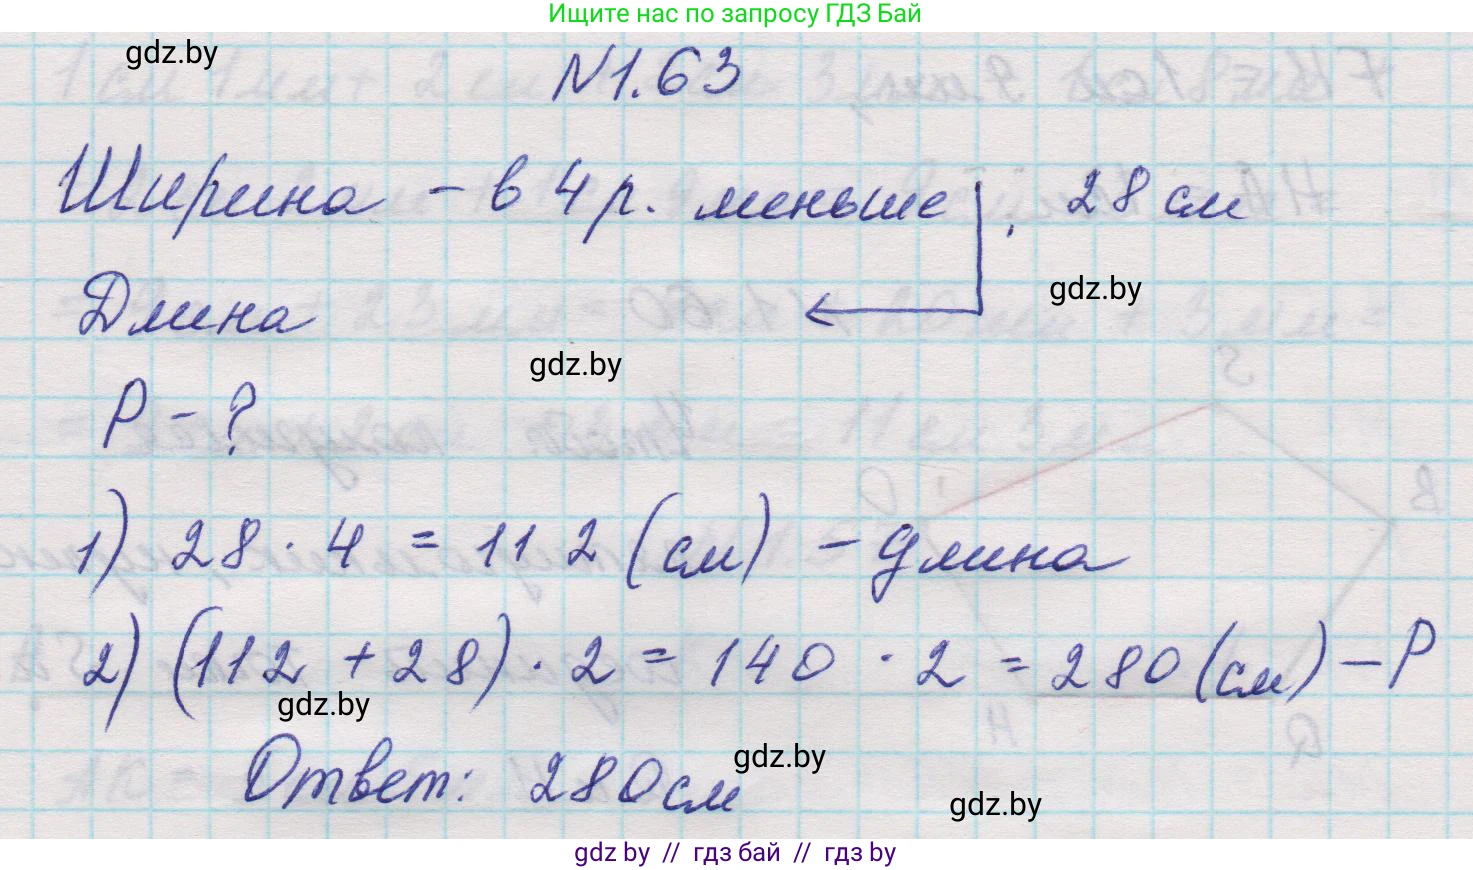 Ищите нас по запросу ГДЗ Бай
gdz.by
N1.63
Ширина - в 4 р. меньше, 28 см
gdz.by
Длина
gdz.by
P - ?
1) 28 · 4 = 112 (см) - длина
2) (112 + 28) · 2 = 140 · 2 = 280 (см) - P
gdz.by
gdz.by
Ответ: 280 см
gdz.by
gdz by // гдз бай // гдз by